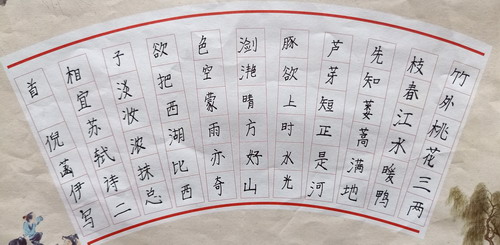 竹外桃花三两
枝春江水暖鸭
先知蒌蒿满地
芦芽短正是河
豚欲上时水光
潋滟晴方好山
色空蒙雨亦奇
欲把西湖比西
子淡妆浓抹总
相宜苏轼诗二
首 倪菡伊写